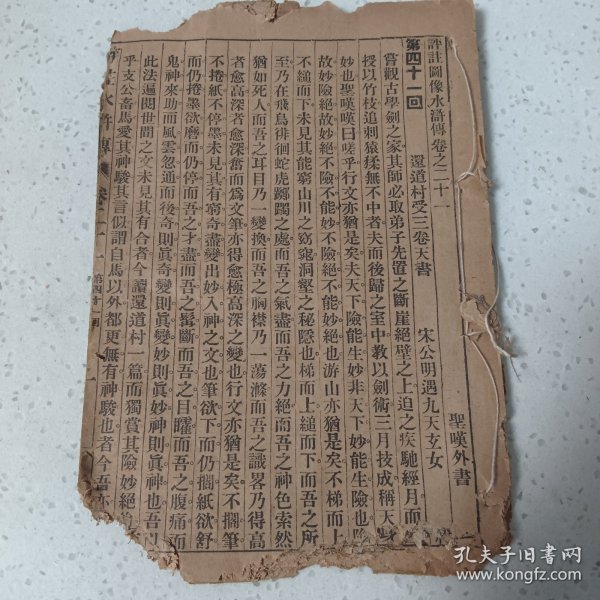 評註圖像水滸傳卷之二十一
聖嘆外書
第四十一回
還道村受三卷天書 宋公明遇九天玄女
嘗觀古學劍之家其師必取弟子先置之斷崖絕壁之上迫之疾馳經月而
授以竹枝追刺猿猱無不中者夫而後歸之室中教以劍術三月技成稱天下
妙也聖嘆嘆曰嗟乎行文亦猶是矣夫天下險能生妙非天下妙能生險也險
故妙險絕故妙絕不險不能妙不險絕不能妙絕也游山亦猶是矣不梯而上
不縋而下未見其能窮山川之窈窕洞壑之秘隱也梯而上縋而下而吾之所
至乃在飛鳥徘徊蛇虎躑躅之處而吾之氣盡而吾之力絕而吾之神色索然
猶如死人而吾之耳目乃一變換而吾之胸襟乃一蕩滌而吾之識畧乃得高
者愈高深者愈深奮而爲文筆亦得愈極高深之變也行文亦猶是矣不擱筆
不捲紙不停墨未見其有窮奇盡變出妙入神之文也筆欲下而仍擱紙欲舒
而仍捲墨欲磨而仍停而吾之才盡而吾之髯斷而吾之目矐而吾之腹痛而
鬼神來助而風雲忽通而後奇則眞奇變則眞變妙則眞妙神則眞神也吾以
此法遍閱世間之文未見其有合者今讀還道村一篇而獨賞其險妙絕
乎支公畜馬愛其神駿其言似謂自馬以外都更無有神駿也者今吾亦
註水滸傳 卷二十一 第四十一回 一
孔夫子旧书网
www.kongfz.com